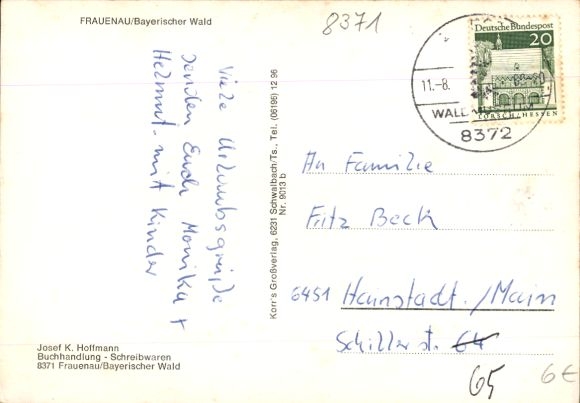 FRAUENAU/Bayerischer Wald
8371
Deutsche Bundespost
20
LORSCH/HESSEN
11.-8.
WALD
8372
Viele Urlaubsgrüße
senden Euch Monika +
Helmut mit Kinder
Korr's Großverlag, 6231 Schwalbach/Ts., Tel. (06196) 12 96
Nr. 9013 b
An Familie
Fritz Beck
6451 Hainstadt./Main
Schillerstr. 64
65
6€
Josef K. Hoffmann
Buchhandlung - Schreibwaren
8371 Frauenau/Bayerischer Wald